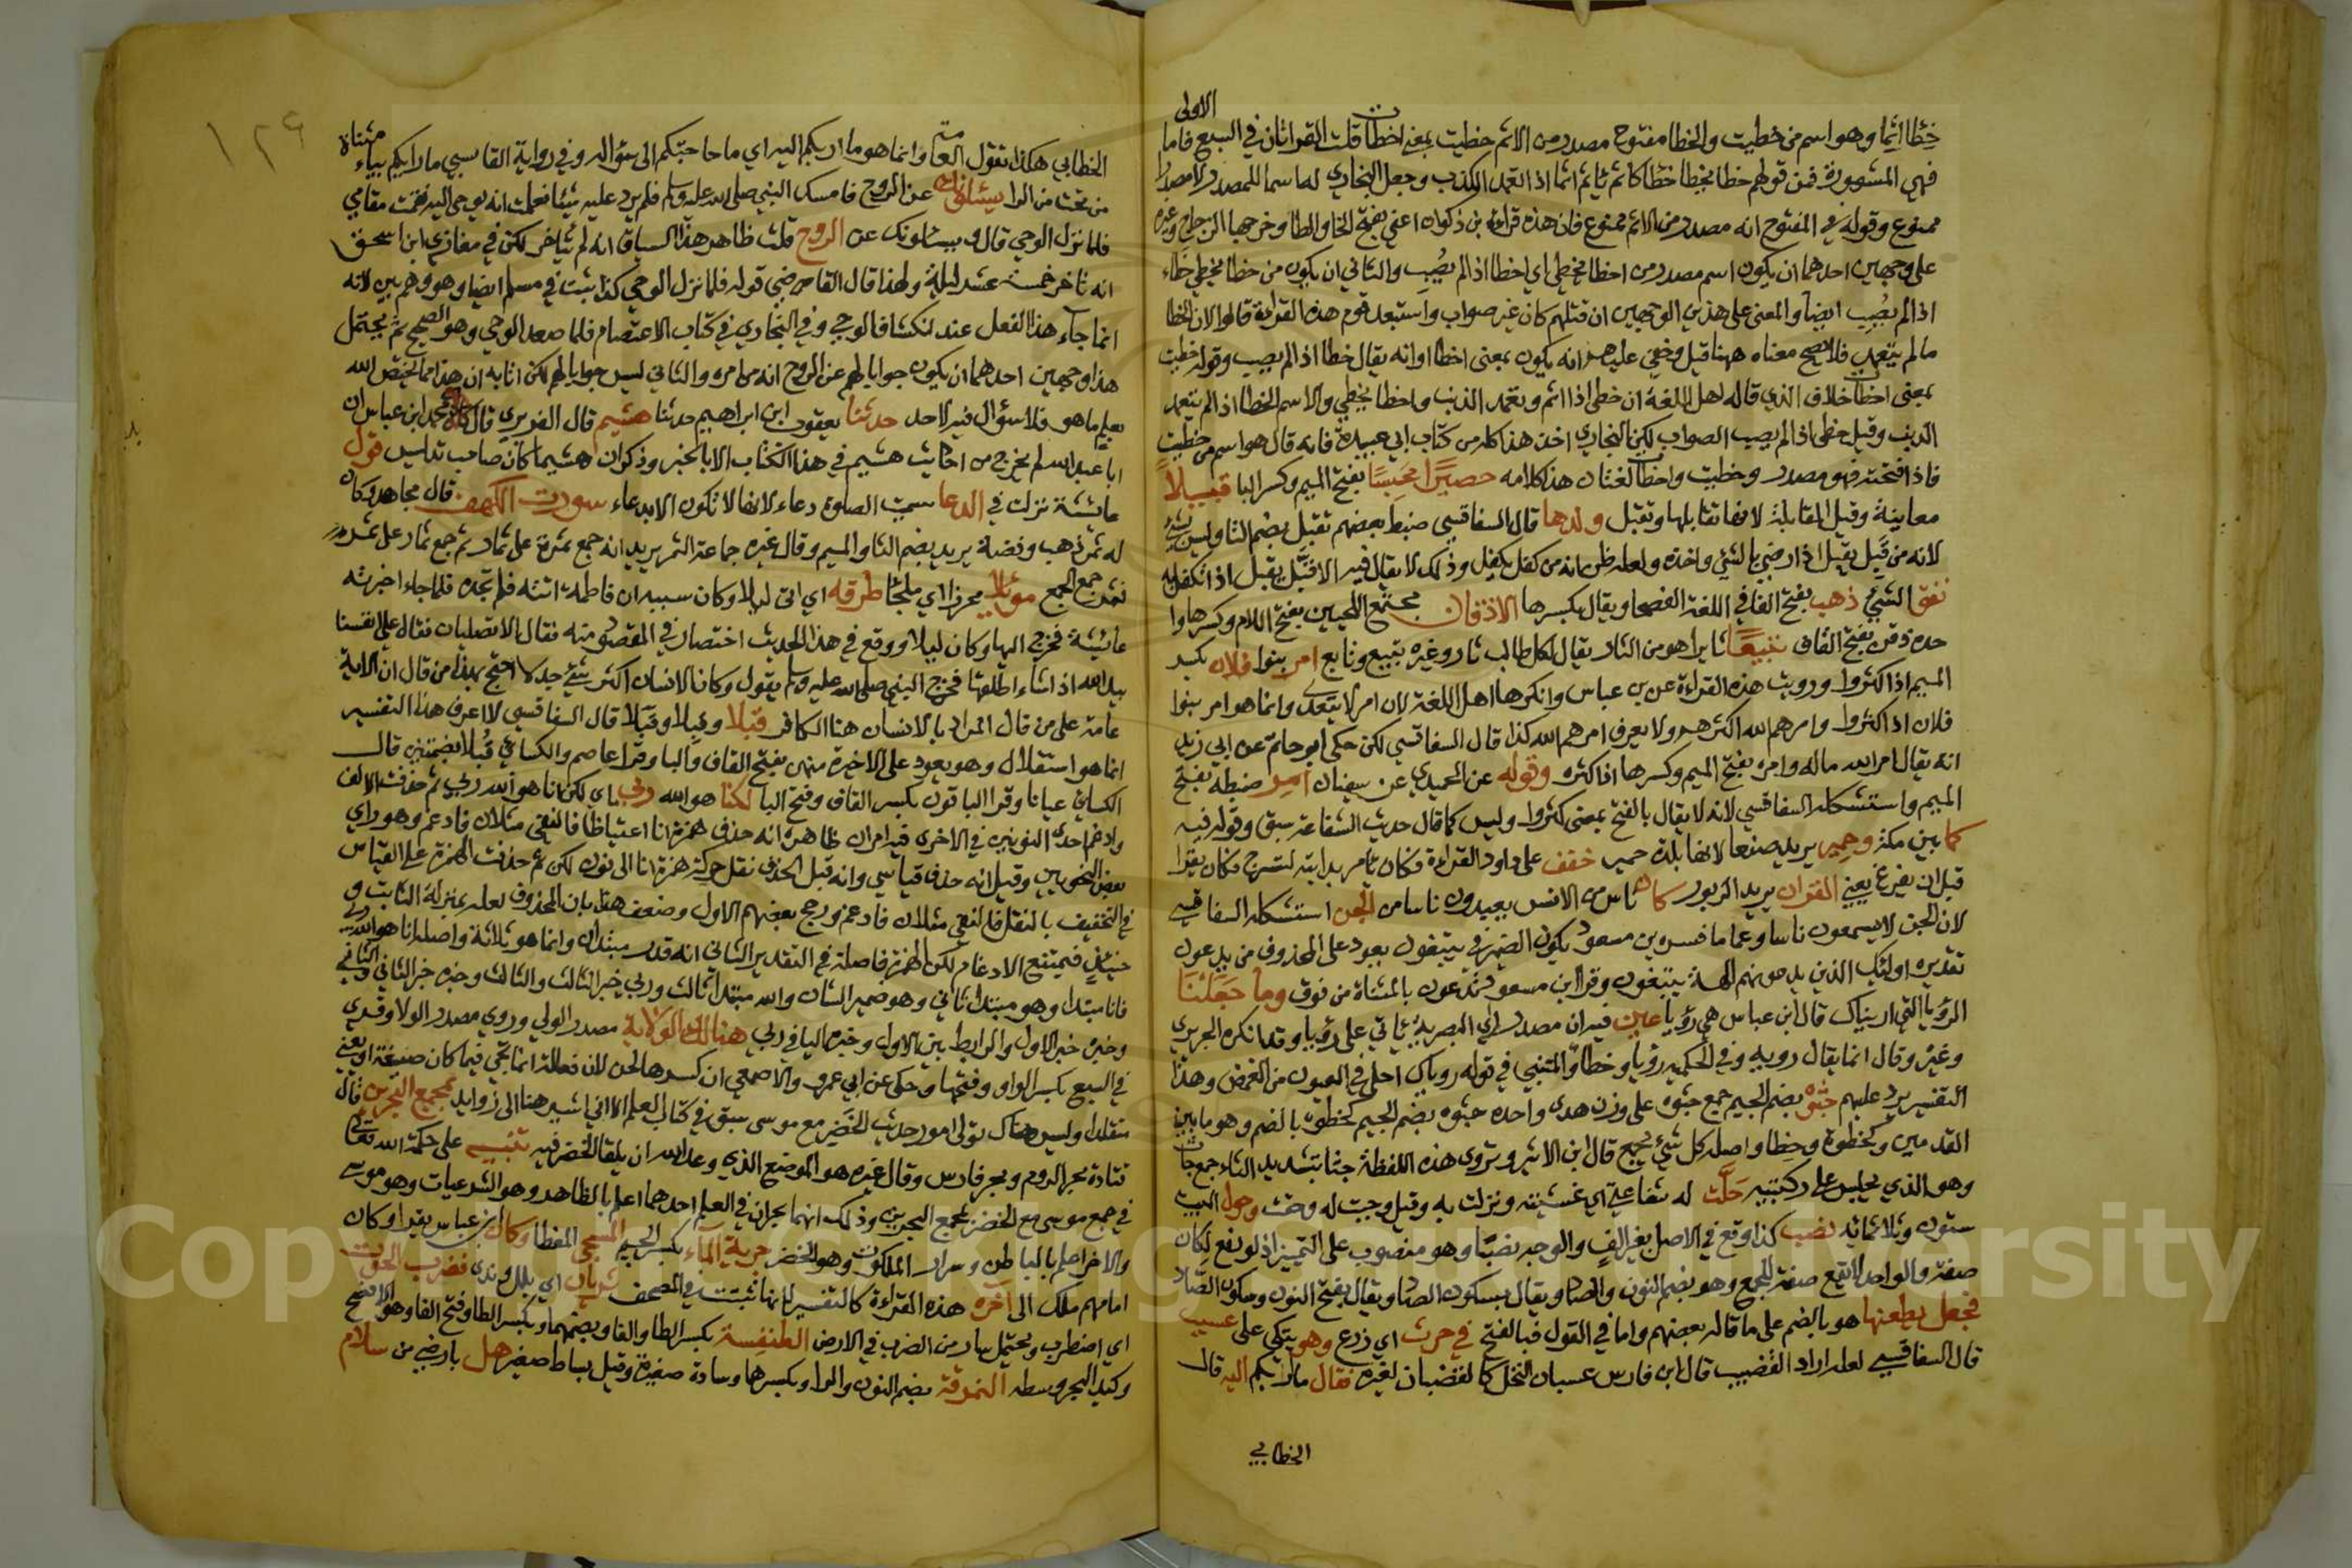 الاولى
خِطًا اثما وهو اسم من خطيت والخطا مفتوح مصدر من الاثم خطيت بمعنى اخطات قلت القراتان في السبع فاما
فهي المشهورة فمن قولهم خطا يخطا خطا كاثم ياثم اثما اذا تعمد الكذب وجعل البخاري لها اسما للمصدر لا مصدرا
ممنوع وقوله في المفتوح انه مصدر من الاثم ممنوع فان هذه قراءة بن ذكوان اعني بفتح الخا والطا وخرجها الزجاج وغيره
على وجهين احدهما ان يكون اسم مصدر من اخطا يخطي اي اخطا اذا لم يُصِب والثاني ان يكون من خطا يخطي خطاء
اذا لم يُصِب ايضا والمعنى على هذين الوجهين ان قتلهم كان غير صواب واستبعد قوم هذه القراءة قالوا لان الخطا
ما لم يتعمد فلا يصح معناه ههنا قيل وخفي عليهم انه يكون بمعنى اخطا اوانه يقال خطا اذا لم يصب وقوله خطيت
بمعنى اخطات خلاف الذي قاله اهل اللغة ان خطي اذا اثم وتعمد الذنب واخطا يخطي والاسم الخطا اذا لم يتعمد
الذنب وقيل خطي اذا لم يصب الصواب لكن البخاري اخذ هذا كله من كتاب ابي عبيدة فانه قال هو اسم من خطيت
فاذا فتحته فهو مصدر وخطيت واخطات لغتان هذا كلامه حصيرًا محبسًا بفتح الميم وكسر البا قبيلاً
معاينة وقيل المقابلة لانها تقابلها وتقبل ولدها قال السفاقسي ضبط بعضهم تقبل بضم التا وليس
لانه من قَبِل يقبل اذا رضي بالشيء واخذه ولعله ظن انه من كفل يكفل وذلك لا يقال فيه الا قَبَل يقبل اذا تكفل به
نفق الشيء ذهب بفتح الفا في اللغة الفصحا ويقال بكسرها الاذقان مجتمع اللحيين بفتح اللام وكسرها والواحد
حده ذقن بفتح القاف تبيعًا ثايرا هو من الثار يقال لكل طالب ثار وغيره تبيع وتابع امر بنوا فلان بكسر
الميم اذا كثروا ورويت هذه القراءة عن بن عباس وانكرها اهل اللغة لان امر لا يتعدى وانما هو امر بنوا
فلان اذا كثروا وامرهم الله اكثرهم ولا يعرف امرهم الله كذا قال السفاقسي لكن حكى ابو حاتم عن ابي زيد
انه يقال امر الله ماله وامره بفتح الميم وكسرها اذا كثره وقوله عن الحميدي عن سفيان امر ضبطه بفتح
الميم واستشكله السفاقسي لانه لا يقال بالفتح بمعنى كثروا وليس كما قال حديث الشفاعة سبق وقوله فيه
كما بين مكة وحمير يريد صنعا لانها بلدة حمير خفف على داود القراءة فكان يامر بدابته لتسرج فكان يقرا
قبل ان يفرغ يعني القران يريد الزبور كان ناس من الانس يعبدون ناسا من الجن استشكله السفاقسي
لان الجن لا يسمعون ناسا وعما ما فسره بن مسعود يكون الضمير في يبتغون يعود على المحذوف من يدعون
تقديره اوليك الذين يدعونهم الهة يبتغون وقرا ابن مسعود تدعون بالمثناة من فوق وما جعلنا
الرؤيا التي اريناك قال ابن عباس هي رؤيا عين فيه ان مصدر راي البصرية ياتي على رؤيا وقد انكره الحريري
وغيره وقال انما يقال رويه وفي الحلمية رؤيا وخطاوا المتنبي في قوله روياك احلى في العيون من الغمض وهذا
التفسير يرد عليهم جثوه بضم الجيم جمع جثوة على وزن هدى واحده جثوه بضم الجيم كخطوة بالضم وهو ما بين
القدمين وكخطوة وخطا واصله كل شيء يجمع قال ابن الاثير وتروى هذه اللفظة جثا بتشديد الثاء جمع جاث
وهو الذي يجلس على ركبتيه حلّت له شفاعتي اي غشيته ونزلت به وقيل وجبت له وحقت وحول البيت
ستون وثلاثمائه نصب كذا وقع في الاصل بغير الف والوجه نصبًا وهو منصوب على التمييز اذ لو رفع لكان
صفة والواحد لا يقع صفة للجمع وهو بضم النون والصاد ويقال بسكون الصاد ويقال بفتح النون وسكون الصاد
فجعل يطعنها هو بالضم على ما قاله بعضهم واما في القول فبالفتح في حرث اي زرع وهو يتكي على عسيب
قال السفاقسي لعله اراد القضيب قال ابن فارس عسبان النخل كالقضبان لغيره فقال ما رابكم اليه قال
الخطابي
١٢٩
الخطابي هكذا تقول العامة وانما هو ما اربكم اليه اي ما حاجتكم الى سؤاله وفي رواية القابسي ما رايكم بياء مثناة
من تحت من الرا يسئلونك عن الروح فامسك النبي صلى الله عليه وسلم فلم يرد عليه شيئا فعلمت انه يوحى اليه فقمت مقامي
فلما نزل الوحي قال ويسئلونك عن الروح قلت ظاهر هذا السياق انه لم يتاخر لكن في مغازي ابن اسحق
انه تاخر خمسة عشر ليلة ولهذا قال القاضي قوله فلما نزل الوحي كذا ثبت في مسلم ايضا وهو وهم بين لانه
انما جاء هذا الفعل عند انكشاف الوحي وفي البخاري في كتاب الاعتصام فلما صعد الوحي وهو الصحيح ثم يحتمل
هذا وجهين احدهما ان يكون جوابا لهم عن الروح انه من امره والثاني ليس جوابا لهم لكن اتابه ان هذا مما يختص الله
بعلم ما هو فلا سؤال فيه لاحد حدثنا يعقوب ابن ابراهيم حدثنا هشيم قال الفربري قال محمد ابن عباس ان
ابا عبد الله لم يخرج من احاديث هشيم في هذا الكتاب الا بالخبر وذكر ان هشيما كان صاحب تدليس قول
عائشة نزلت في الدعا سميت الصلوة دعاء لانها لا تكون الا بدعاء سورت الكهف قال مجاهد وكان
له ثمر ذهب وفضة يريد بضم الثا والميم وقال غيره جماعة الثمر يريد انه جمع ثمرة على ثمار ثم جمع ثمار على ثمر
فثمر جمع الجمع موئلا محرزا اي ملجئا طرقه اي اتى ليلا وكان سببه ان فاطمة اتته فلم تجده فلما جاء اخبرته
عائيشة فخرج اليها وكان ليلا ووقع في هذا الحديث اختصار في المقصود منه فقال الا تصليان فقال علي انفسنا
بيد الله اذا شاء اطلقها فخرج النبي صلى الله عليه وسلم يقول وكان الانسان اكثر شيء جدلا احتج بهذا من قال ان الاية
عامة على من قال المراد بالانسان هنا الكافر قبلا وقِبلا وقَبَلا قال السفاقسي لا اعرف هذا التفسير
انما هو استقلال وهو يعود على الاخيرة منهن بفتح القاف والبا وقرا عاصم والكسائي قُبلا بضمتين قال
الكسائي عيانا وقرا الباقون بكسر القاف وفتح البا لكنا هو الله ربي اي لكن انا هو الله ربي ثم حذفت الالف
وادغم احدى النونين في الاخرى فيه امران ظاهره انه حذف همزة انا اعتباطا فالتقى مثلان فادغم وهو راي
بعض النحويين وقيل انه حذف قياسي وانه قبل الحذف نقل حركة همزة انا الى نون لكن ثم حذفت الهمزة على القياس
في التخفيف بالنقل فالتقى مثلان فادغم ورجح بعضهم الاول وضعف هذا بان المحذوف لعله بمنزلة الثابت و
حينئذ فيمتنع الادغام لكن الهمزة فاصلة في التقدير الثاني انه قدر مبتدان وانما هو ثلاثة واصله انا هو الله ربي
فانا مبتدا وهو مبتدا ثاني وهو ضمير الشان والله مبتدا ثالث وربي خبر الثالث والثالث وخبره خبر الثاني والثاني
وخبره خبر الاول والرابط بين الاول وخبره اليا في ربي هنالك الولاية مصدر الولي وروي مصدر الولا وقري
في السبع بكسر الواو وفتحها وحكى عن ابي عمرو والاصمعي ان كسرها لحن لان فعالة انما تجي فيما كان صنيعة او معنى
متقلدا وليس هناك تولى امور حديث الخضر مع موسى سبق في كتاب العلم الا اني اشير هنا الى زوايد مجمع البحرين قال
قتادة بحر الروم وبحر فارس وقال غيره هو الموضع الذي وعد الله ان يلقا الخضر فيه تنبيه على حكمة الله تعالى
في جمع موسى مع الخضر بمجمع البحرين وذلك انهما بحران في العلم احدهما اعلم بالظاهر وهو الشرعيات وهو موسى
والاخر اعلم بالباطن وسرار الملكوت وهو الخضر جرية الماء بكسر الجيم المسجى المغطا وكان ابن عباس يقرا وكان
امامهم ملك الى اخره هذه القراءة كالتفسير لا انها ثبتت في المصحف ثريان اي بلل وندى فضرب الحوت
اي اضطرب ويحتمل سار من الضرب في الارض الطنفسة بكسر الطا والفا وبضمهما وبكسر الطا وفتح الفا وهو الافصح
وكبد البحر وسطه النمرقة بضم النون والرا وبكسرها وسادة صغيرة وقيل بساط صغير هل بارضي من سلام
Copyright © King Saud University